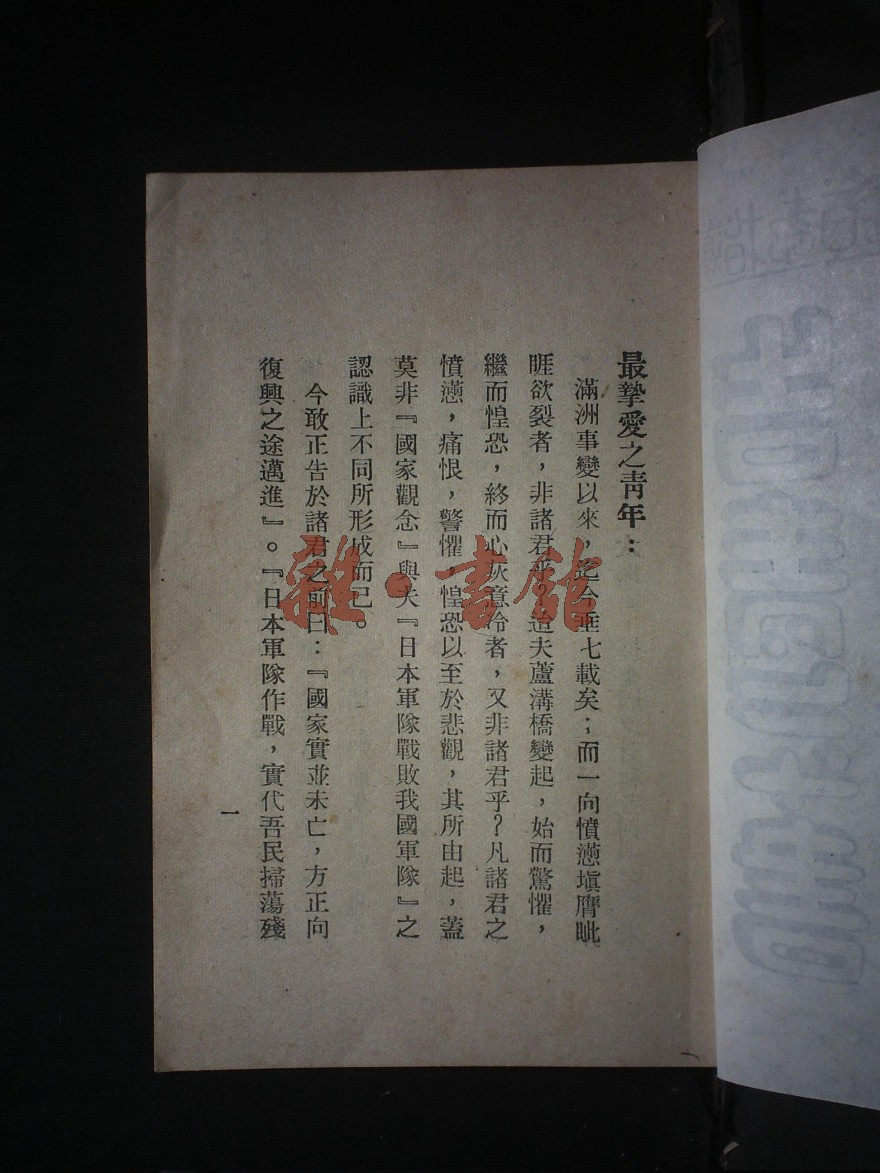 最摯愛之青年：
滿洲事變以來，迄今垂七載矣；而一向憤懣塡膺眦
睚欲裂者，非諸君乎？迨夫蘆溝橋變起，始而驚懼，
繼而惶恐，終而心灰意冷者，又非諸君乎？凡諸君之
憤懣，痛恨，警懼，惶恐以至於悲觀，其所由起，蓋
莫非『國家觀念』與夫『日本軍隊戰敗我國軍隊』之
認識上不同所形成而已。
今敢正告於諸君之前曰：『國家實並未亡，方正向
復興之途邁進』。『日本軍隊作戰，實代吾民掃蕩殘
一
雜·書館